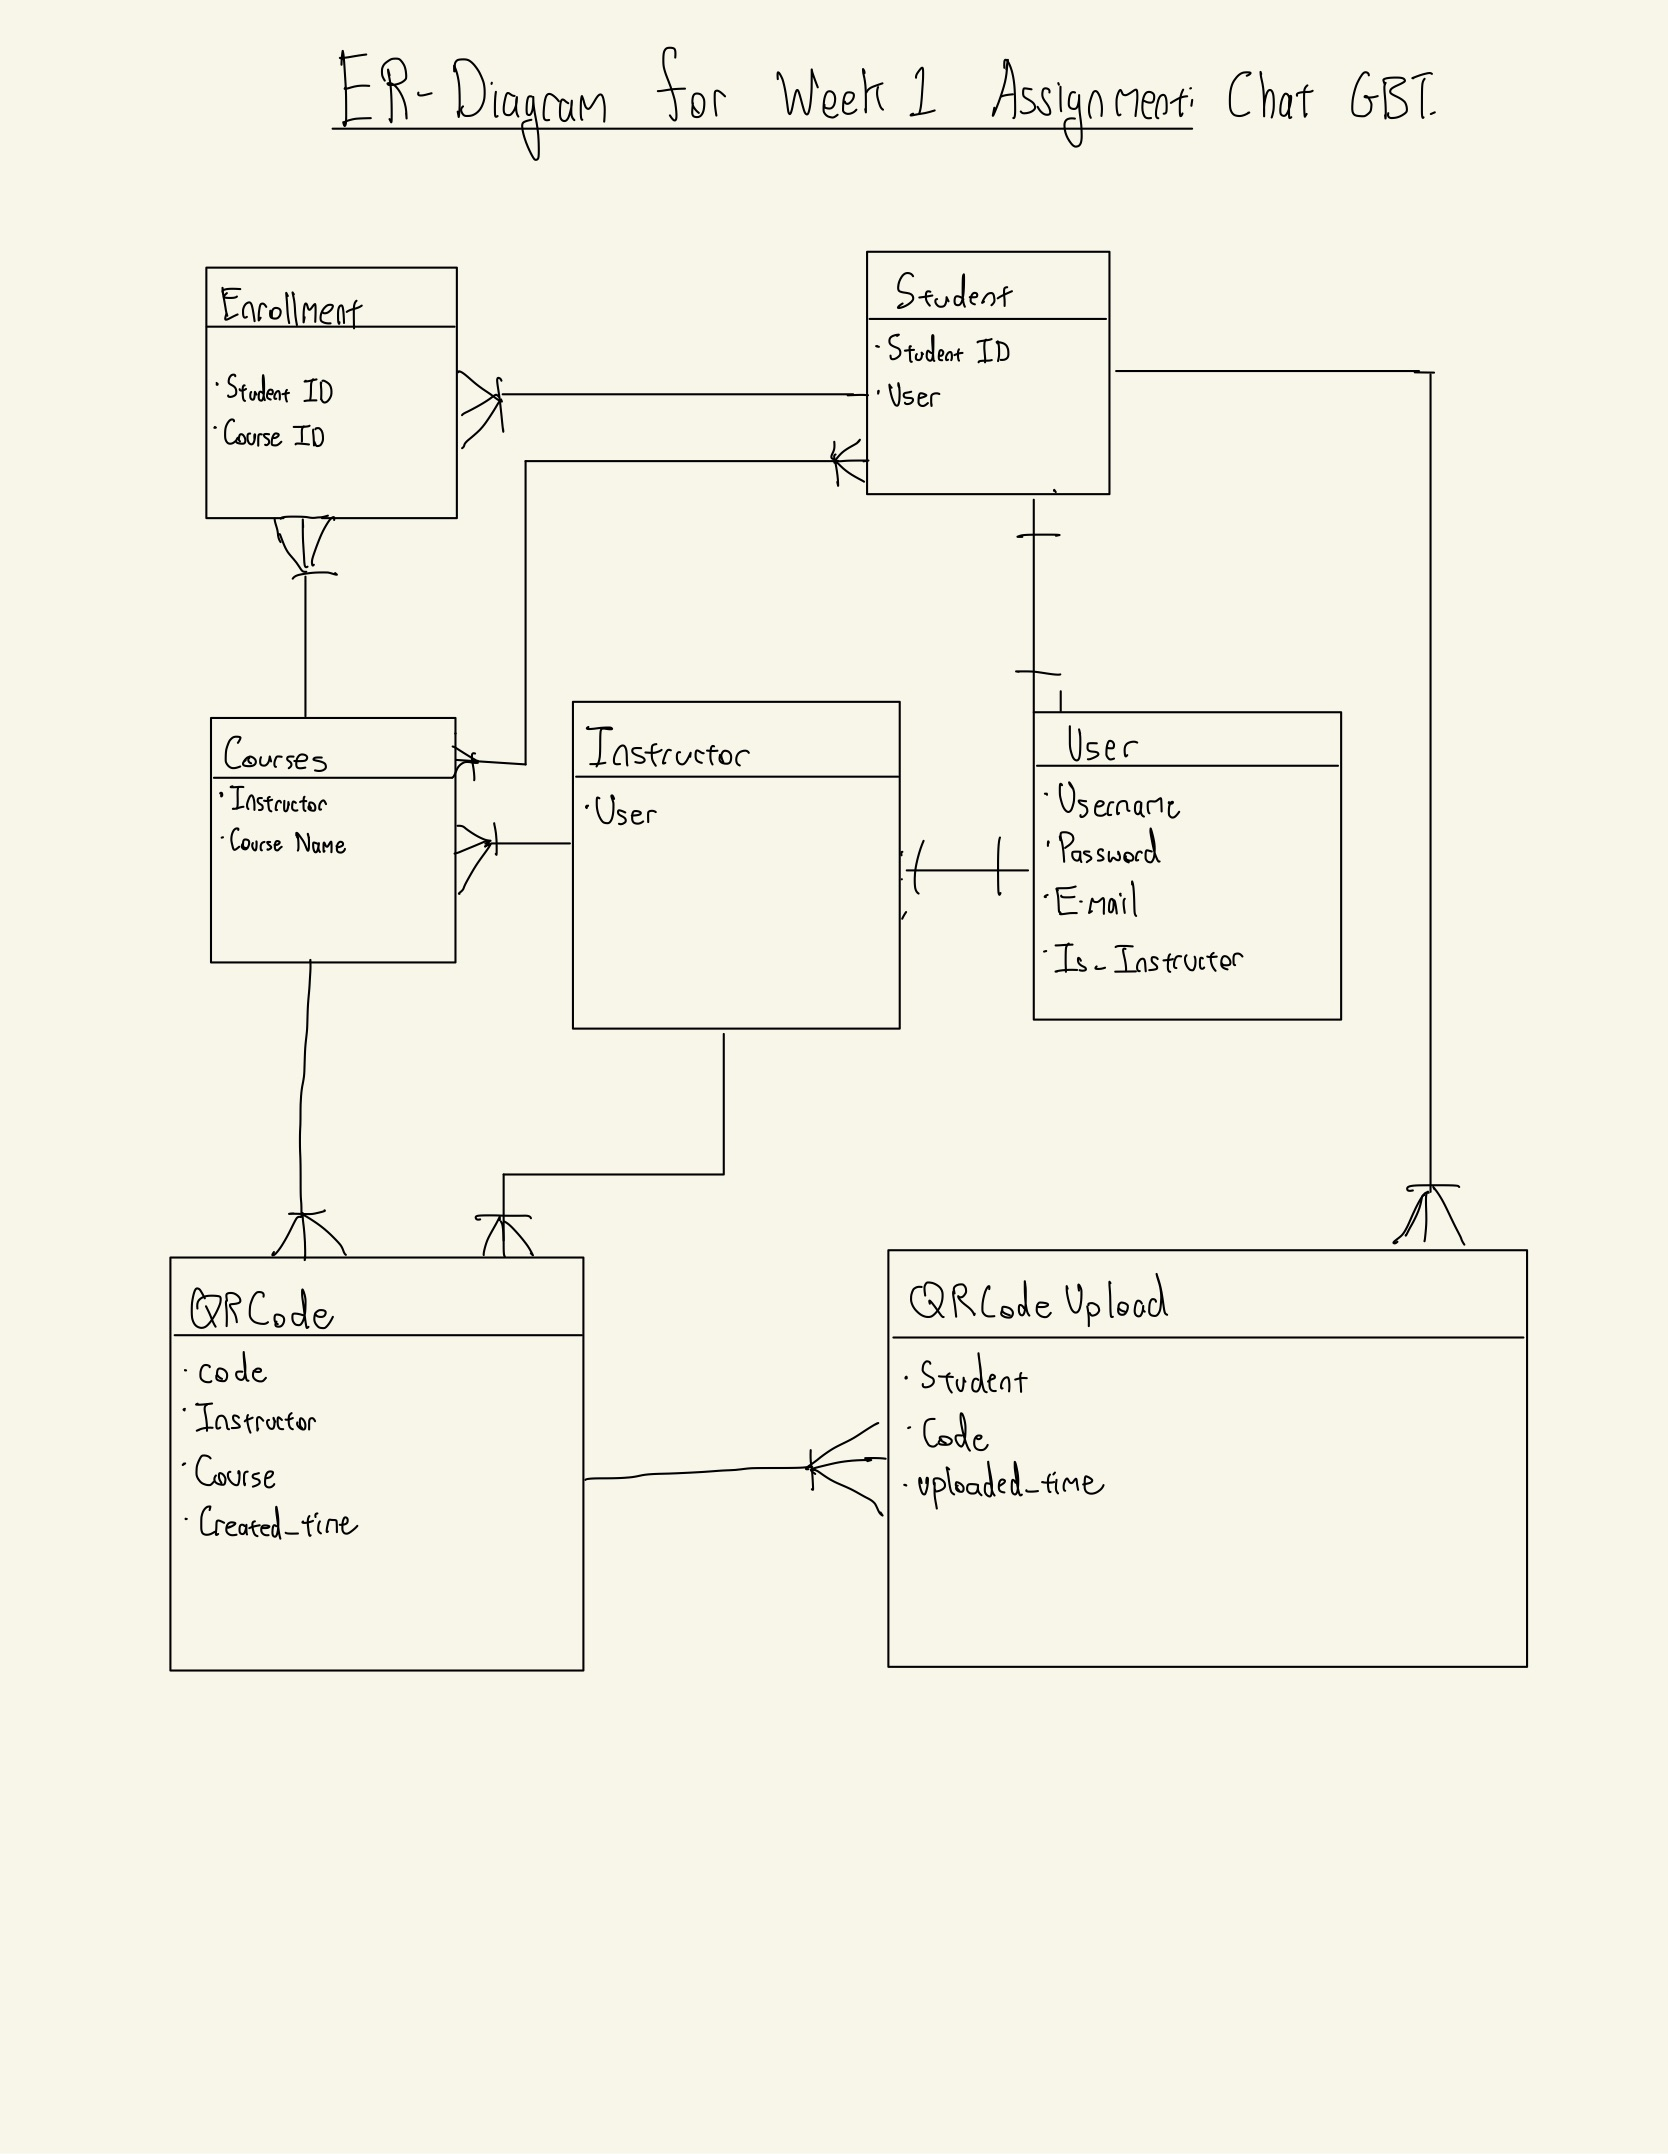 ER-Diagram for Week 1 Assignment: Chat GBT.
Enrollment
· Student ID
· Course ID
Student
· Student ID
· User
Courses
· Instructor
· Course Name
Instructor
· User
User
· Username
· Password
· E-mail
· Is_Instructor
QRCode
· code
· Instructor
· Course
· Created_time
QRCode Upload
· Student
· Code
· uploaded_time